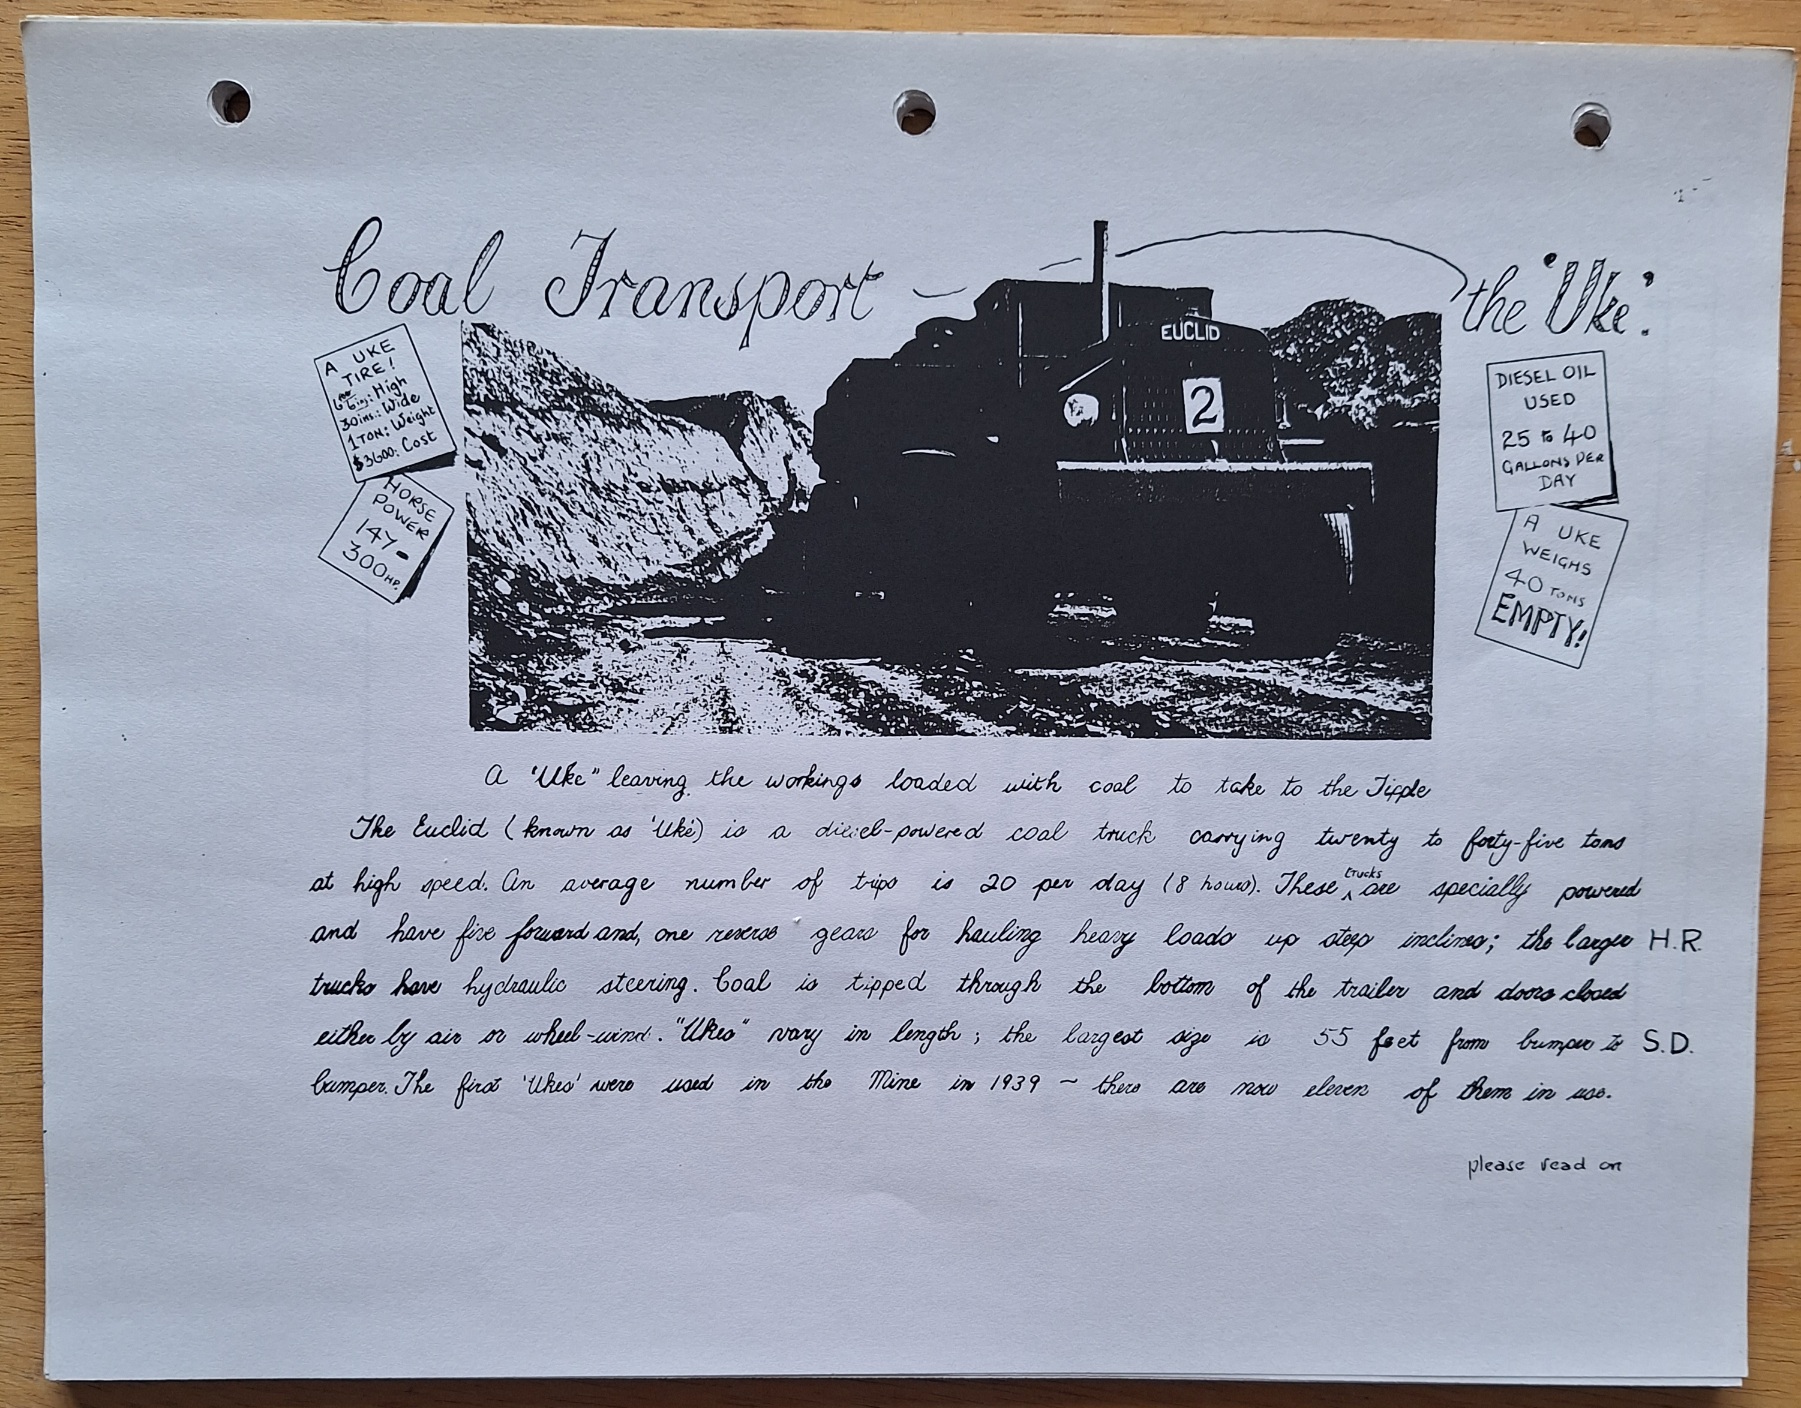 Coal Transport — the "Uke".
A UKE
TIRE!
6ft 6in: High
30ins.: Wide
1 TON: Weight
$3600: Cost
HORSE
POWER
147-
300 H.P.
EUCLID
2
DIESEL OIL
USED
25 to 40
GALLONS PER
DAY
A UKE
WEIGHS
40 TONS
EMPTY!
A 'Uke" leaving the workings loaded with coal to take to the Tipple
The Euclid (known as 'Uke') is a diesel-powered coal truck carrying twenty to forty-five tons
at high speed. An average number of trips is 20 per day (8 hours). These trucks are specially powered
and have five forward and, one reverse gears for hauling heavy loads up steep inclines; the larger H.R.
trucks have hydraulic steering. Coal is tipped through the bottom of the trailer and doors closed
either by air or wheel-wind. "Ukes" vary in length; the largest size is 55 feet from bumper to S.D.
bumper. The first 'Ukes' were used in the Mine in 1939 ~ there are now eleven of them in use.
please read on